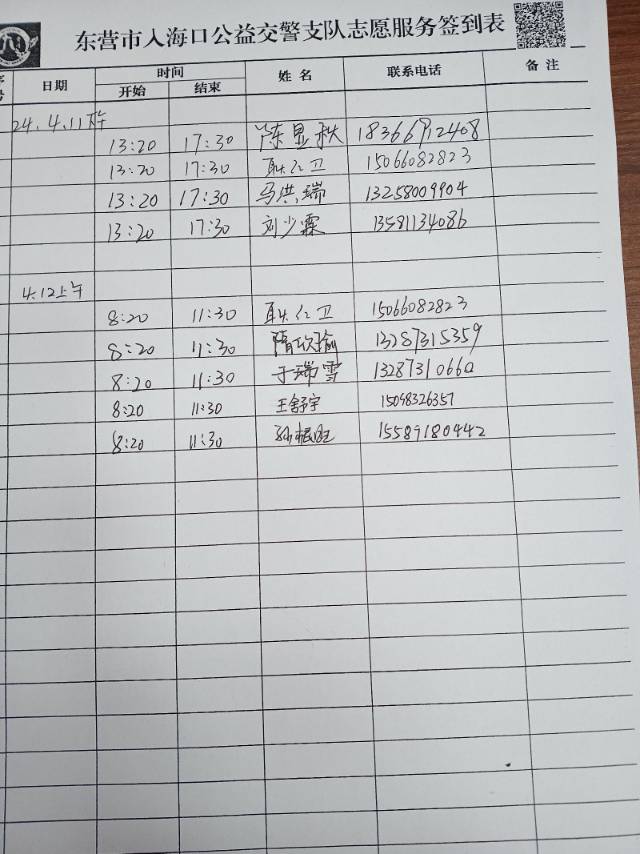 东营市入海口公益交警支队志愿服务签到表
日期 时间 姓名 联系电话 备注
开始 结束
24.4.11下午
13:20 17:30 陈显秩 18366912408
13:20 17:30 耿仁卫 15066082823
13:20 17:30 马洪瑞 13258009904
13:20 17:30 刘少霖 13581134086
4.12上午
8:20 11:30 耿仁卫 15066082823
8:20 11:30 隋欣瑜 13287315359
8:20 11:30 于瑞雪 13287310660
8:20 11:30 王舒宇 15098326357
8:20 11:30 孙根旺 15589180442